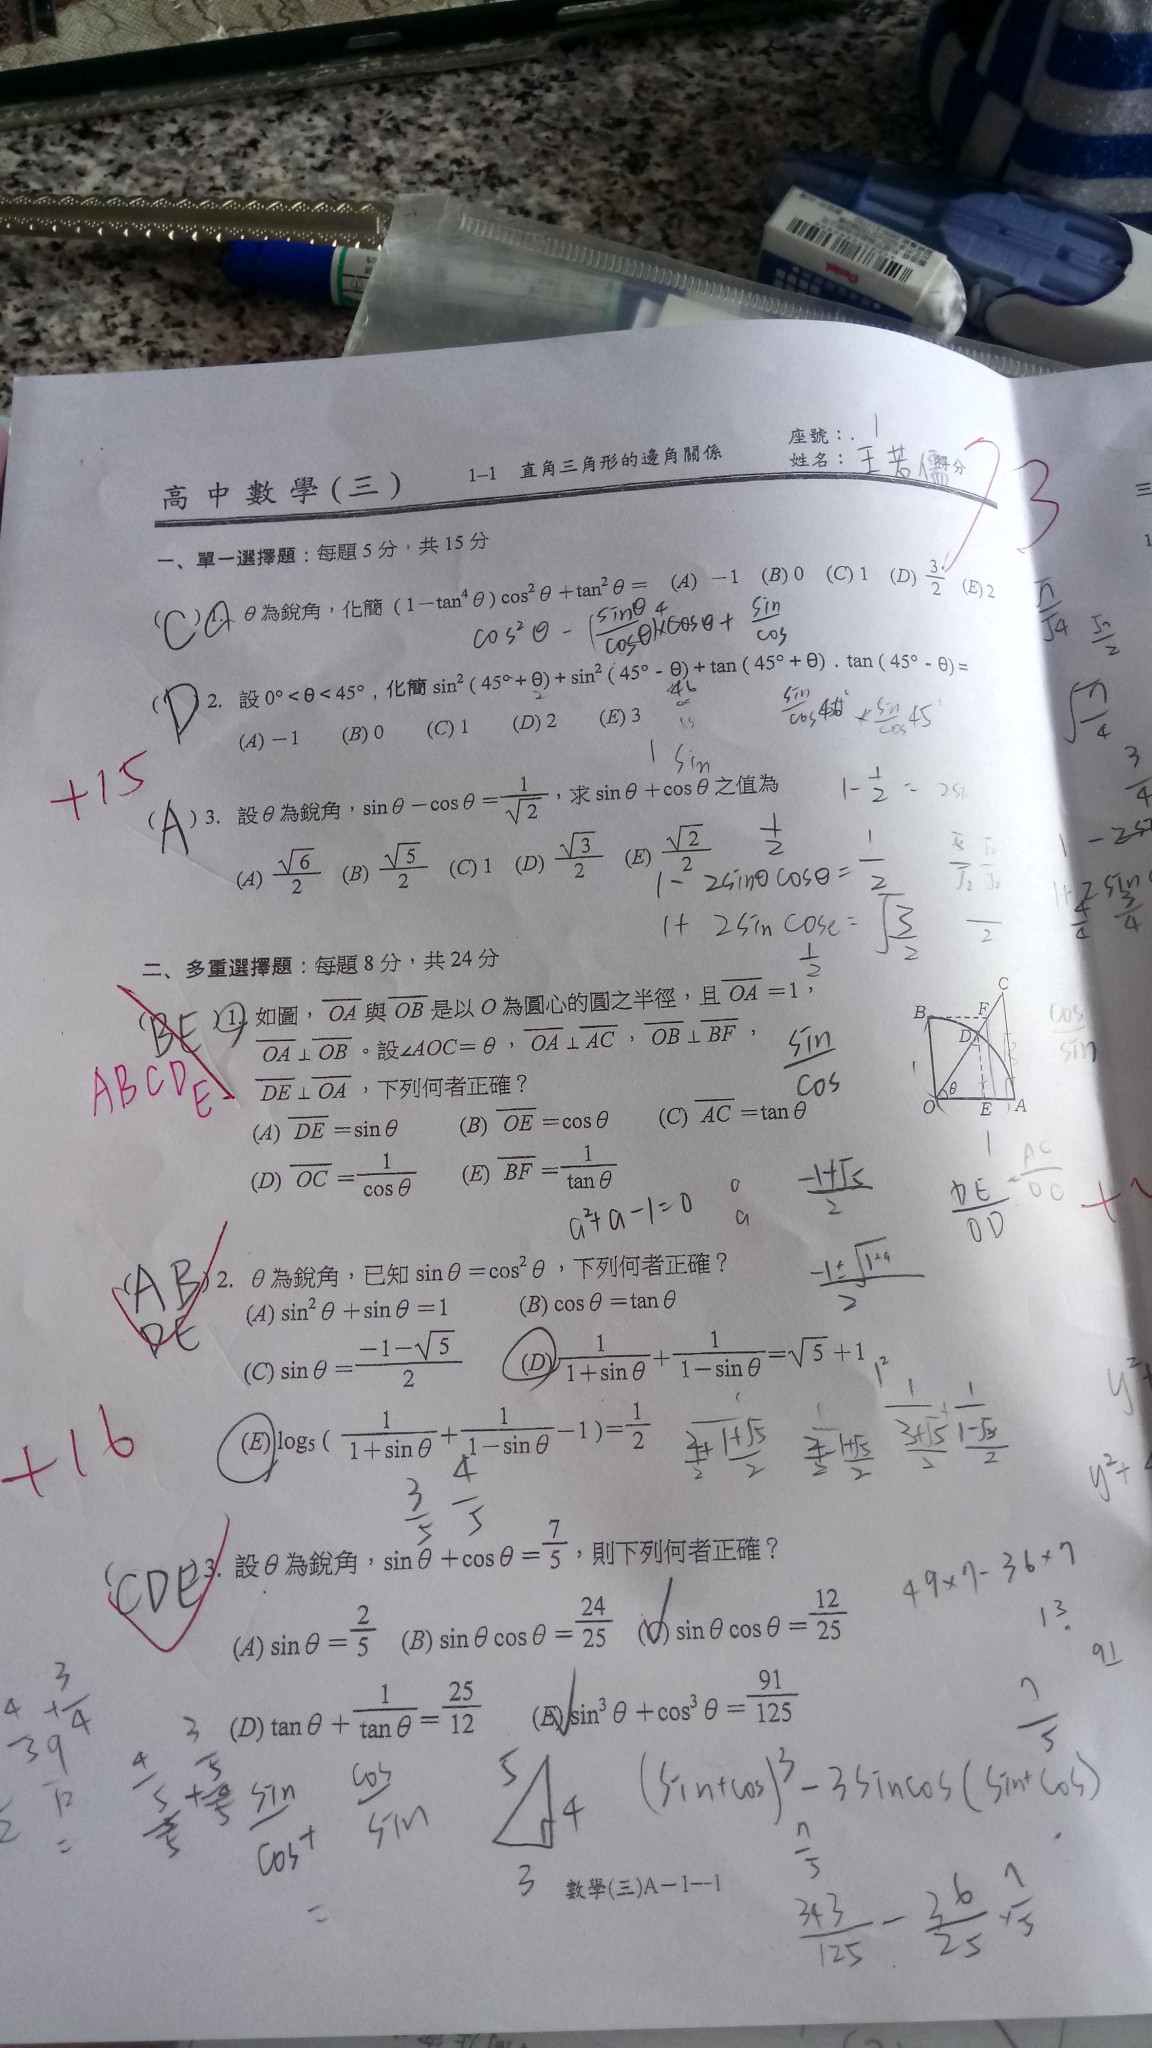 座號：1
姓名：王若儒
得分 73
高中數學(三) 1-1 直角三角形的邊角關係
一、單一選擇題：每題5分，共15分
(C) 1. θ為銳角，化簡 (1－tan⁴θ) cos²θ＋tan²θ＝ (A) －1 (B) 0 (C) 1 (D) 3/2 (E) 2
cos²θ － (sinθ/cosθ)⁴×cosθ + sin/cos
(D) 2. 設 0°<θ<45°，化簡 sin²(45°+θ)+sin²(45°-θ)+tan(45°+θ).tan(45°-θ)=
(A) －1 (B) 0 (C) 1 (D) 2 (E) 3
1 sin
+15
(A) 3. 設θ為銳角，sinθ－cosθ＝1/√2，求 sinθ＋cosθ之值為
(A) √6/2 (B) √5/2 (C) 1 (D) √3/2 (E) √2/2
1－2sinθcosθ=1/2
1+ 2sin cosθ= √3/2
二、多重選擇題：每題8分，共24分
(BE) 1. 如圖，OA與OB是以O為圓心的圓之半徑，且OA＝1，
OA⊥OB。設∠AOC＝θ，OA⊥AC，OB⊥BF，
ABCDE
DE⊥OA，下列何者正確？
(A) DE＝sinθ (B) OE＝cosθ (C) AC＝tanθ
(D) OC＝1/cosθ (E) BF＝1/tanθ
B F C D θ O E A
sin/cos
DE/OD = AC/OC
a²+a－1=0
-1+√5/2
(ABDE) 2. θ為銳角，已知 sinθ＝cos²θ，下列何者正確？
(A) sin²θ＋sinθ＝1 (B) cosθ＝tanθ
(C) sinθ＝(－1－√5)/2 (D) 1/(1＋sinθ)＋1/(1－sinθ)＝√5＋1
(E) log₅(1/(1＋sinθ)＋1/(1－sinθ)－1)＝1/2
+16
3/5 4/5
(CDE) 3. 設θ為銳角，sinθ＋cosθ＝7/5，則下列何者正確？
(A) sinθ＝2/5 (B) sinθcosθ＝24/25 (C) sinθcosθ＝12/25
(D) tanθ＋1/tanθ＝25/12 (E) sin³θ＋cos³θ＝91/125
49×7－36×7
91
7/5
sin/cos + cos/sin
=
5 4 3
(sin+cos)³－3sincos(sin+cos)
7/5
343/125 － 36/25 × 7/5
數學(三)A－1－1